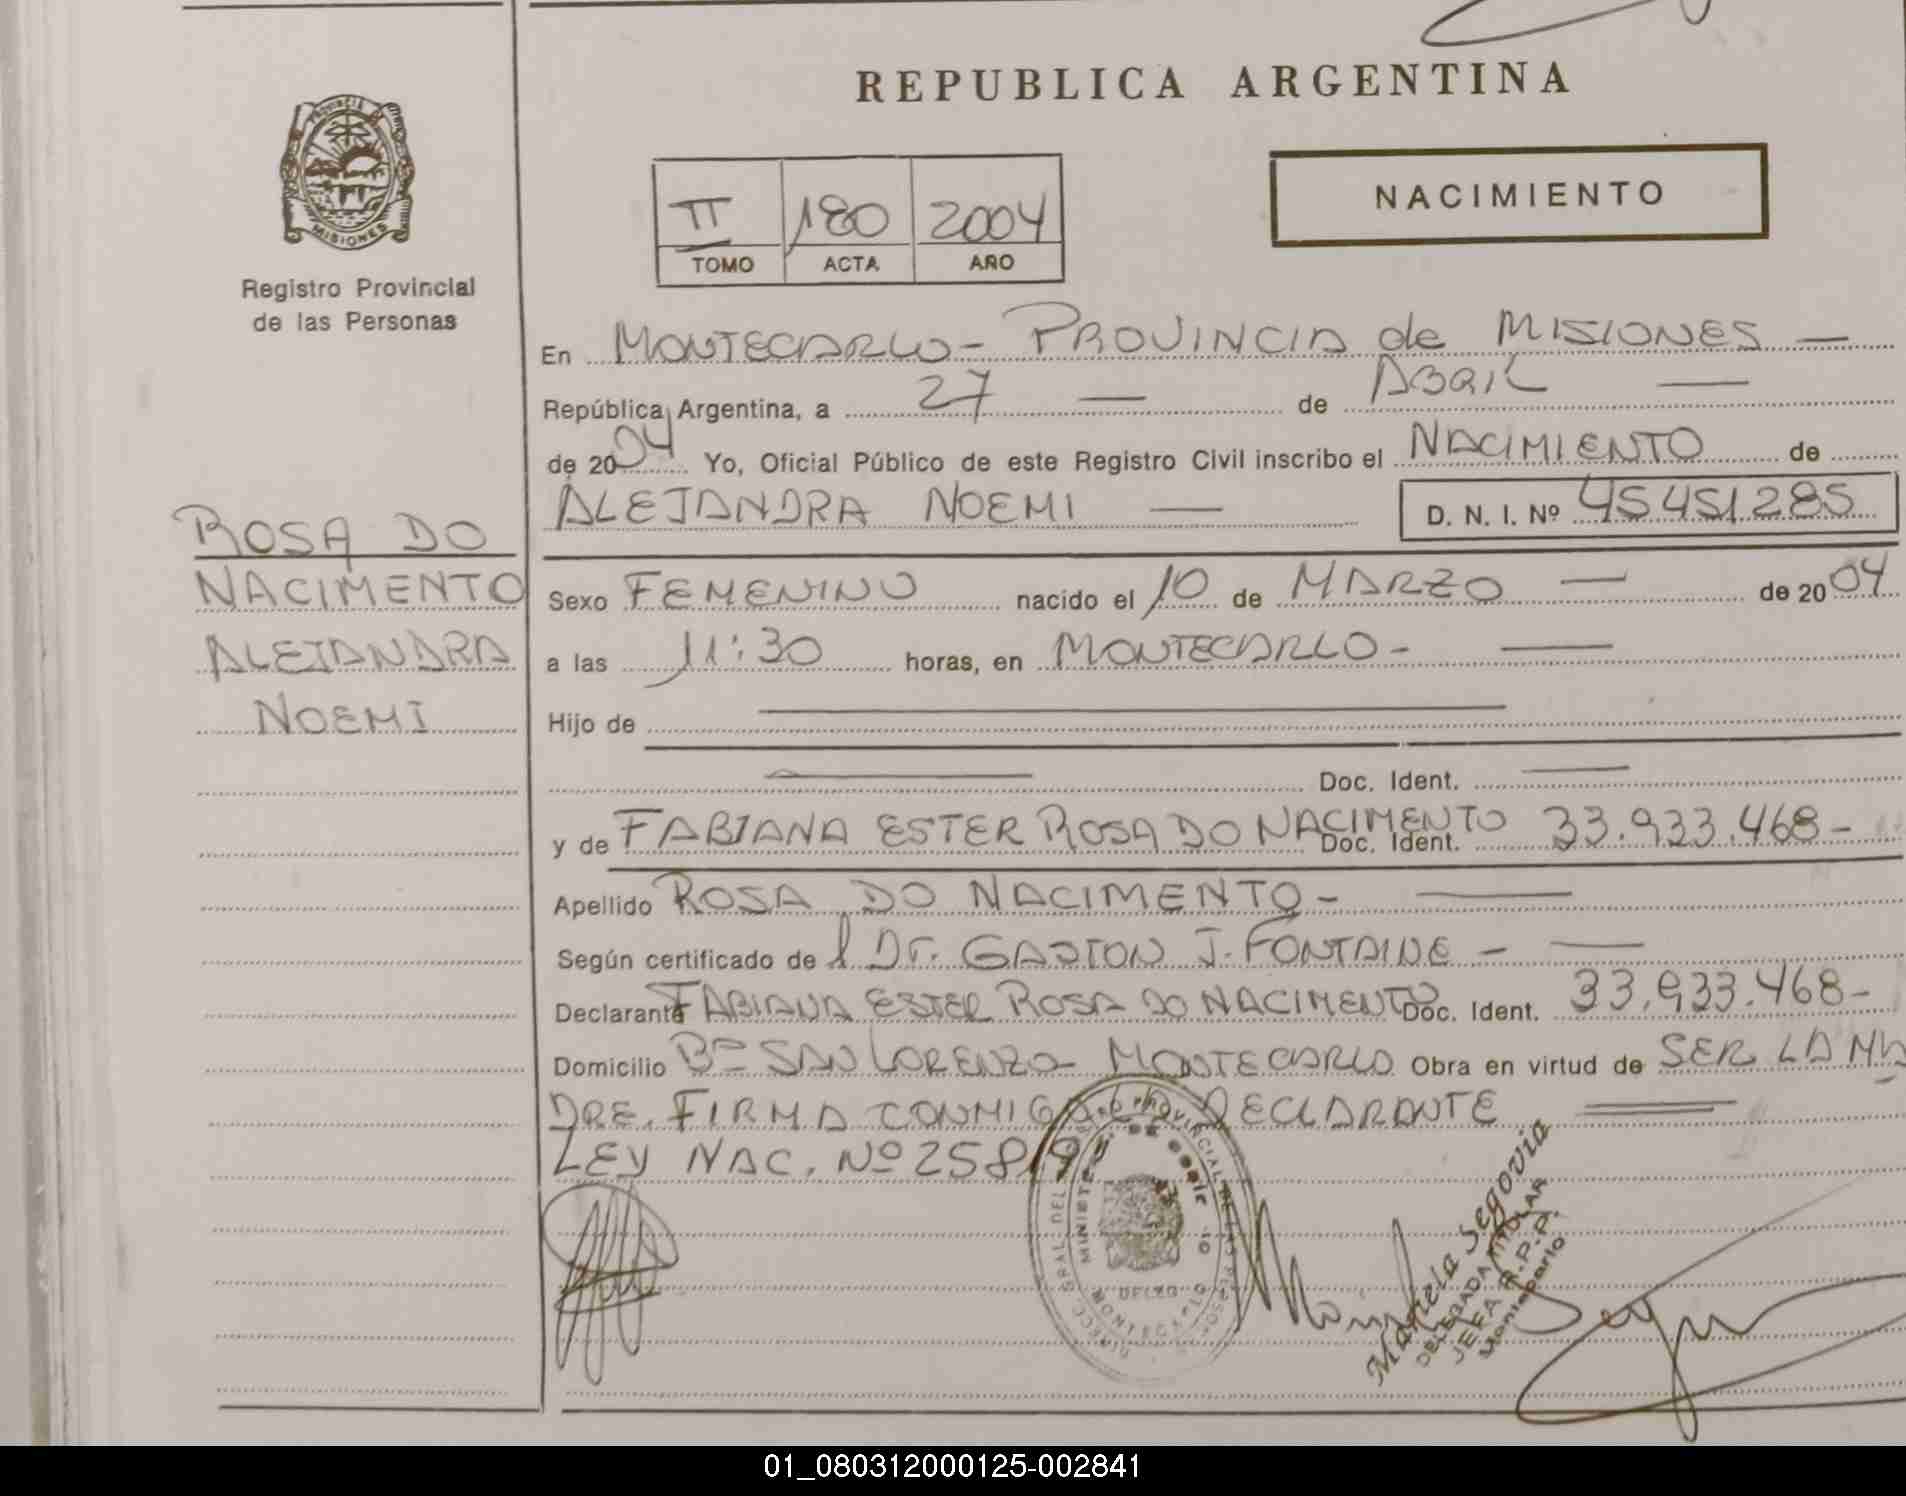 REPUBLICA ARGENTINA
PROVINCIA
MISIONES
Registro Provincial
de las Personas
II 180 2004
TOMO ACTA AÑO
NACIMIENTO
En MONTECARLO - PROVINCIA de MISIONES —
República Argentina, a 27 — de ABRIL —
de 2004 Yo, Oficial Público de este Registro Civil inscribo el NACIMIENTO de
ALEJANDRA NOEMI — D. N. I. Nº 45451285
ROSA DO
NACIMENTO
ALEJANDRA
NOEMI
Sexo FEMENINO nacido el 10 de MARZO — de 2004
a las 11:30 horas, en MONTECARLO - —
Hijo de —
— Doc. Ident. —
y de FABIANA ESTER ROSA DO NACIMENTO Doc. Ident. 33.933.468-
Apellido ROSA DO NACIMENTO - —
Según certificado de l Dr. GASTON J. FONTAINE - —
Declarante FABIANA ESTER ROSA DO NACIMENTO Doc. Ident. 33.933.468-
Domicilio Bº SAN LORENZO - MONTECARLO Obra en virtud de SER LA MA
DRE. FIRMA CONMIGO LA DECLARANTE =
LEY NAC. Nº 25819
Mariela Segovia
DELEGADA TITULAR
JEFA R.P.P.
Montecarlo
01_080312000125-002841